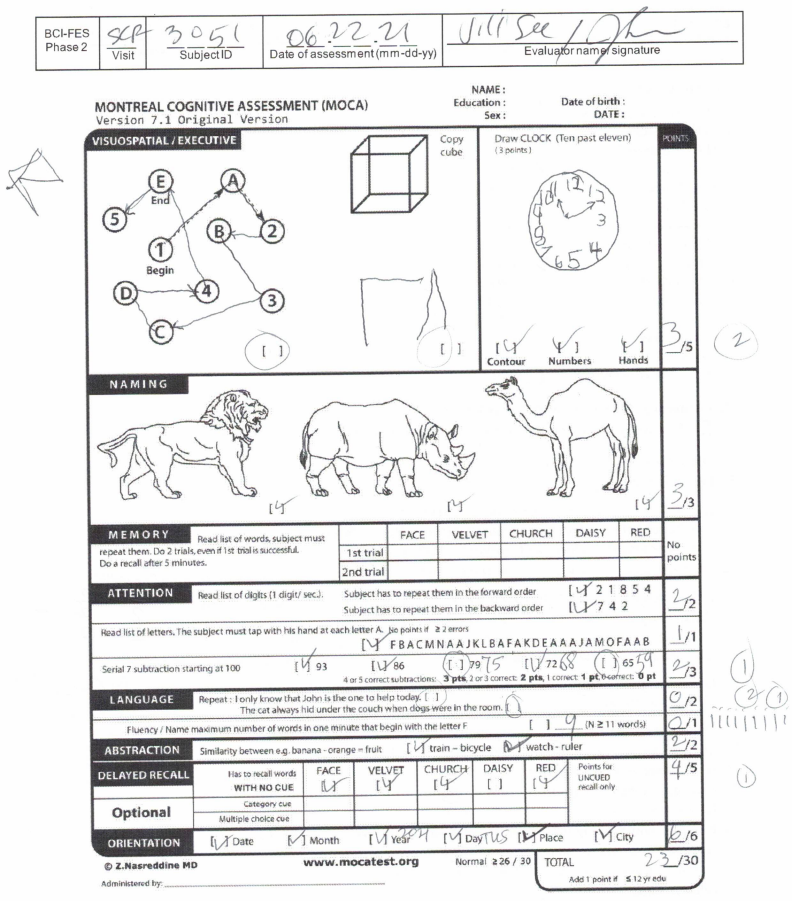 BCI-FES Phase 2
SCR 3051 06.22.21 Jill See
Visit Subject ID Date of assessment (mm-dd-yy) Evaluator name/signature
NAME :
MONTREAL COGNITIVE ASSESSMENT (MOCA) Education : Date of birth :
Version 7.1 Original Version Sex : DATE :
VISUOSPATIAL / EXECUTIVE Copy cube Draw CLOCK (Ten past eleven) POINTS
(3 points)
E A
End
5 B 2
1
Begin
D 4 3
C
11 12 1 2
10 3
9
8 4
7 6 5
[ ] [ ] [✓] [✓] [✓] 3/5 2
Contour Numbers Hands
NAMING
[✓] [✓] [✓] 3/3
MEMORY Read list of words, subject must repeat them. Do 2 trials, even if 1st trial is successful. Do a recall after 5 minutes.
FACE VELVET CHURCH DAISY RED
1st trial
2nd trial
No points
ATTENTION Read list of digits (1 digit/ sec.). Subject has to repeat them in the forward order [✓] 2 1 8 5 4
Subject has to repeat them in the backward order [✓] 7 4 2 2/2
Read list of letters. The subject must tap with his hand at each letter A. No points if ≥ 2 errors
[✓] FBACMNAAJKLBAFAKDEAAAJAMOFAAB 1/1
Serial 7 subtraction starting at 100 [✓] 93 [✓] 86 [ ] 79 75 [✓] 72 68 [ ] 65 59 2/3 1
4 or 5 correct subtractions: 3 pts, 2 or 3 correct: 2 pts, 1 correct: 1 pt, 0 correct: 0 pt
LANGUAGE Repeat : I only know that John is the one to help today. [ ]
The cat always hid under the couch when dogs were in the room. [ ] 0/2 2 1
Fluency / Name maximum number of words in one minute that begin with the letter F [ ] 9 (N ≥ 11 words) 0/1
ABSTRACTION Similarity between e.g. banana - orange = fruit [✓] train – bicycle [✓] watch - ruler 2/2
DELAYED RECALL Has to recall words WITH NO CUE FACE VELVET CHURCH DAISY RED Points for UNCUED recall only 4/5
[✓] [✓] [✓] [ ] [✓] 1
Optional Category cue
Multiple choice cue
ORIENTATION [✓] Date [✓] Month [✓] Year [✓] Day TUS [✓] Place [✓] City 6/6
© Z.Nasreddine MD www.mocatest.org Normal ≥ 26 / 30 TOTAL 23/30
Administered by: Add 1 point if ≤ 12 yr edu